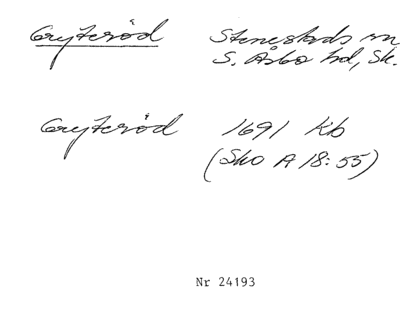 Gryteröd Stenestads sn
S. Åsbo hd, Sk.
Gryteröd 1691 Kb
(Sko A 18:55)
Nr 24193